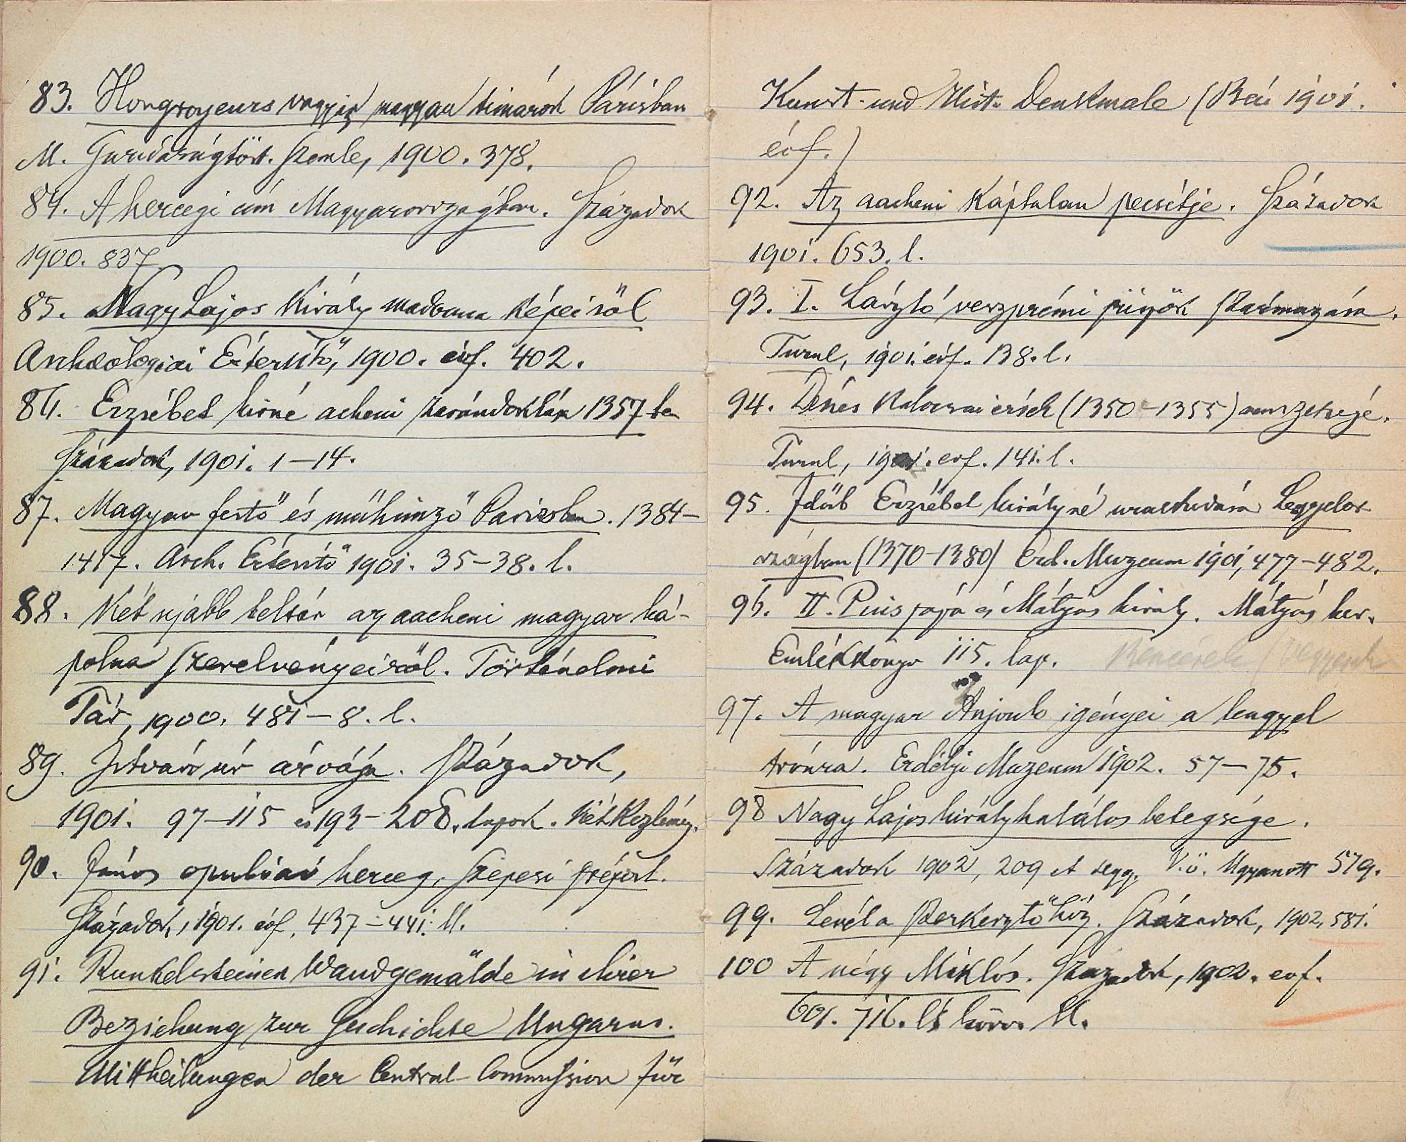 83. Hongroyeurs vagyis magyar timárok Párisban
M. Gazdaságtört. Szemle, 1900. 378.
84. A hercegi cím Magyarországban. Századok
1900. 837
85. Nagy Lajos Király madonna képeiről
Archeologiai Értesítő, 1900. évf. 402.
86. Erzsébet kirné acheni zarándoklása 1357-be
Századok, 1901. 1–14.
87. Magyar festő és műhimző Parisban. 1384–
1417. Arch. Értesítő 1901. 35–38. l.
88. Két ujabb leltár az aacheni magyar ká-
polna szerelvényeiről. Történelmi
Tár, 1900. 481–8. l.
89. István úr árvája. Századok,
1901. 97–115 és 193–208. lapok. Két Közlemény.
90. János opuliai herceg, szepesi prépost.
Századok, 1901. évf. 437–441. ll.
91. Runkelsteiner Wandgemälde in ihrer
Beziehung zur Geschichte Ungarns.
Mittheilungen der Central-Commission für
Kunst- und Hist. Denkmale (Bécs 1901.
évf.)
92. Az aacheni Káptalan pecsétje. Századok
1901. 653. l.
93. I. László veszprémi püspök származása.
Turul, 1901. évf. 138. l.
94. Dénes Kalocsai érsek (1350–1355) nemzetsége.
Turul, 1901. evf. 141. l.
95. Idősb Erzsébet királyné uralkodása Lengyelor-
szágban (1370–1380) Erd. Muzeum 1901, 477–482.
96. II. Pius pápa és Mátyás király. Mátyás kir.
Emlékkönyv 115. lap.
97. A magyar Anjouk igényei a lengyel
trónra. Erdélyi Muzeum 1902. 57–75.
98 Nagy Lajos király halálos betegsége.
Századok 1902, 209 et seqq. V.ö. Ugyanott 579.
99. Levél a Szerkesztőhöz. Századok, 1902, 581.
100 A négy Miklós. Századok, 1902. evf.
601. 716. és köv. ll.